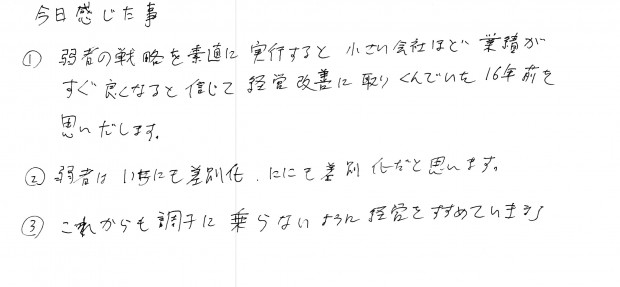 今日感じた事
① 弱者の戦略を素直に実行すると小さい会社ほど業績が
すぐ良くなると信じて経営改善に取りくんでいた16年前を
思いだします。
② 弱者は いちにも差別化、ににも差別化だと思います。
③ これからも調子に乗らないように経営をすすめていきます